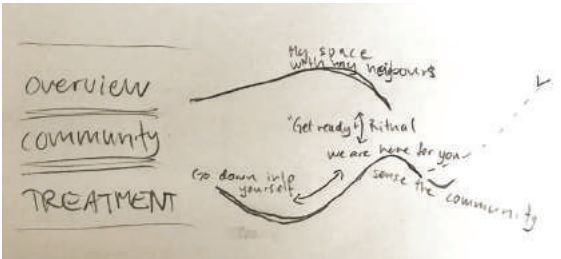 overview
community
TREATMENT
My space
with my neigbours
"Get ready" Ritual
we are here for you
Go down into
yourself
sense the community